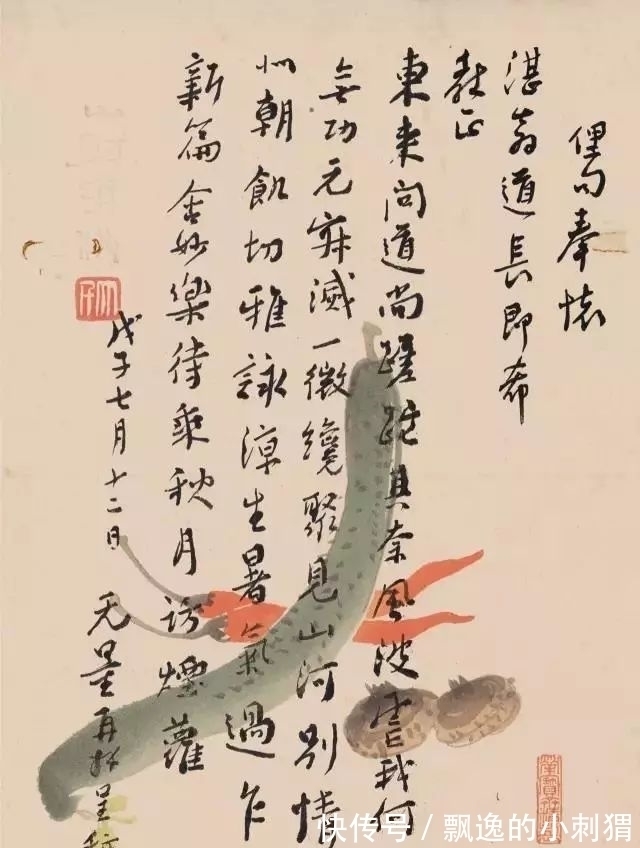 俚句奉懷
湛翁道長即希
教正
東來問道尚蹉跎其奈風波雲我何
無功元寂滅一微纔聚見山河別情
朝飢切雅詠涼生暑氣過乍
新篇含妙樂待乘秋月訪煙蘿
戊子七月十二日
无量再拜呈稿
快传号/飘逸的小刺猬